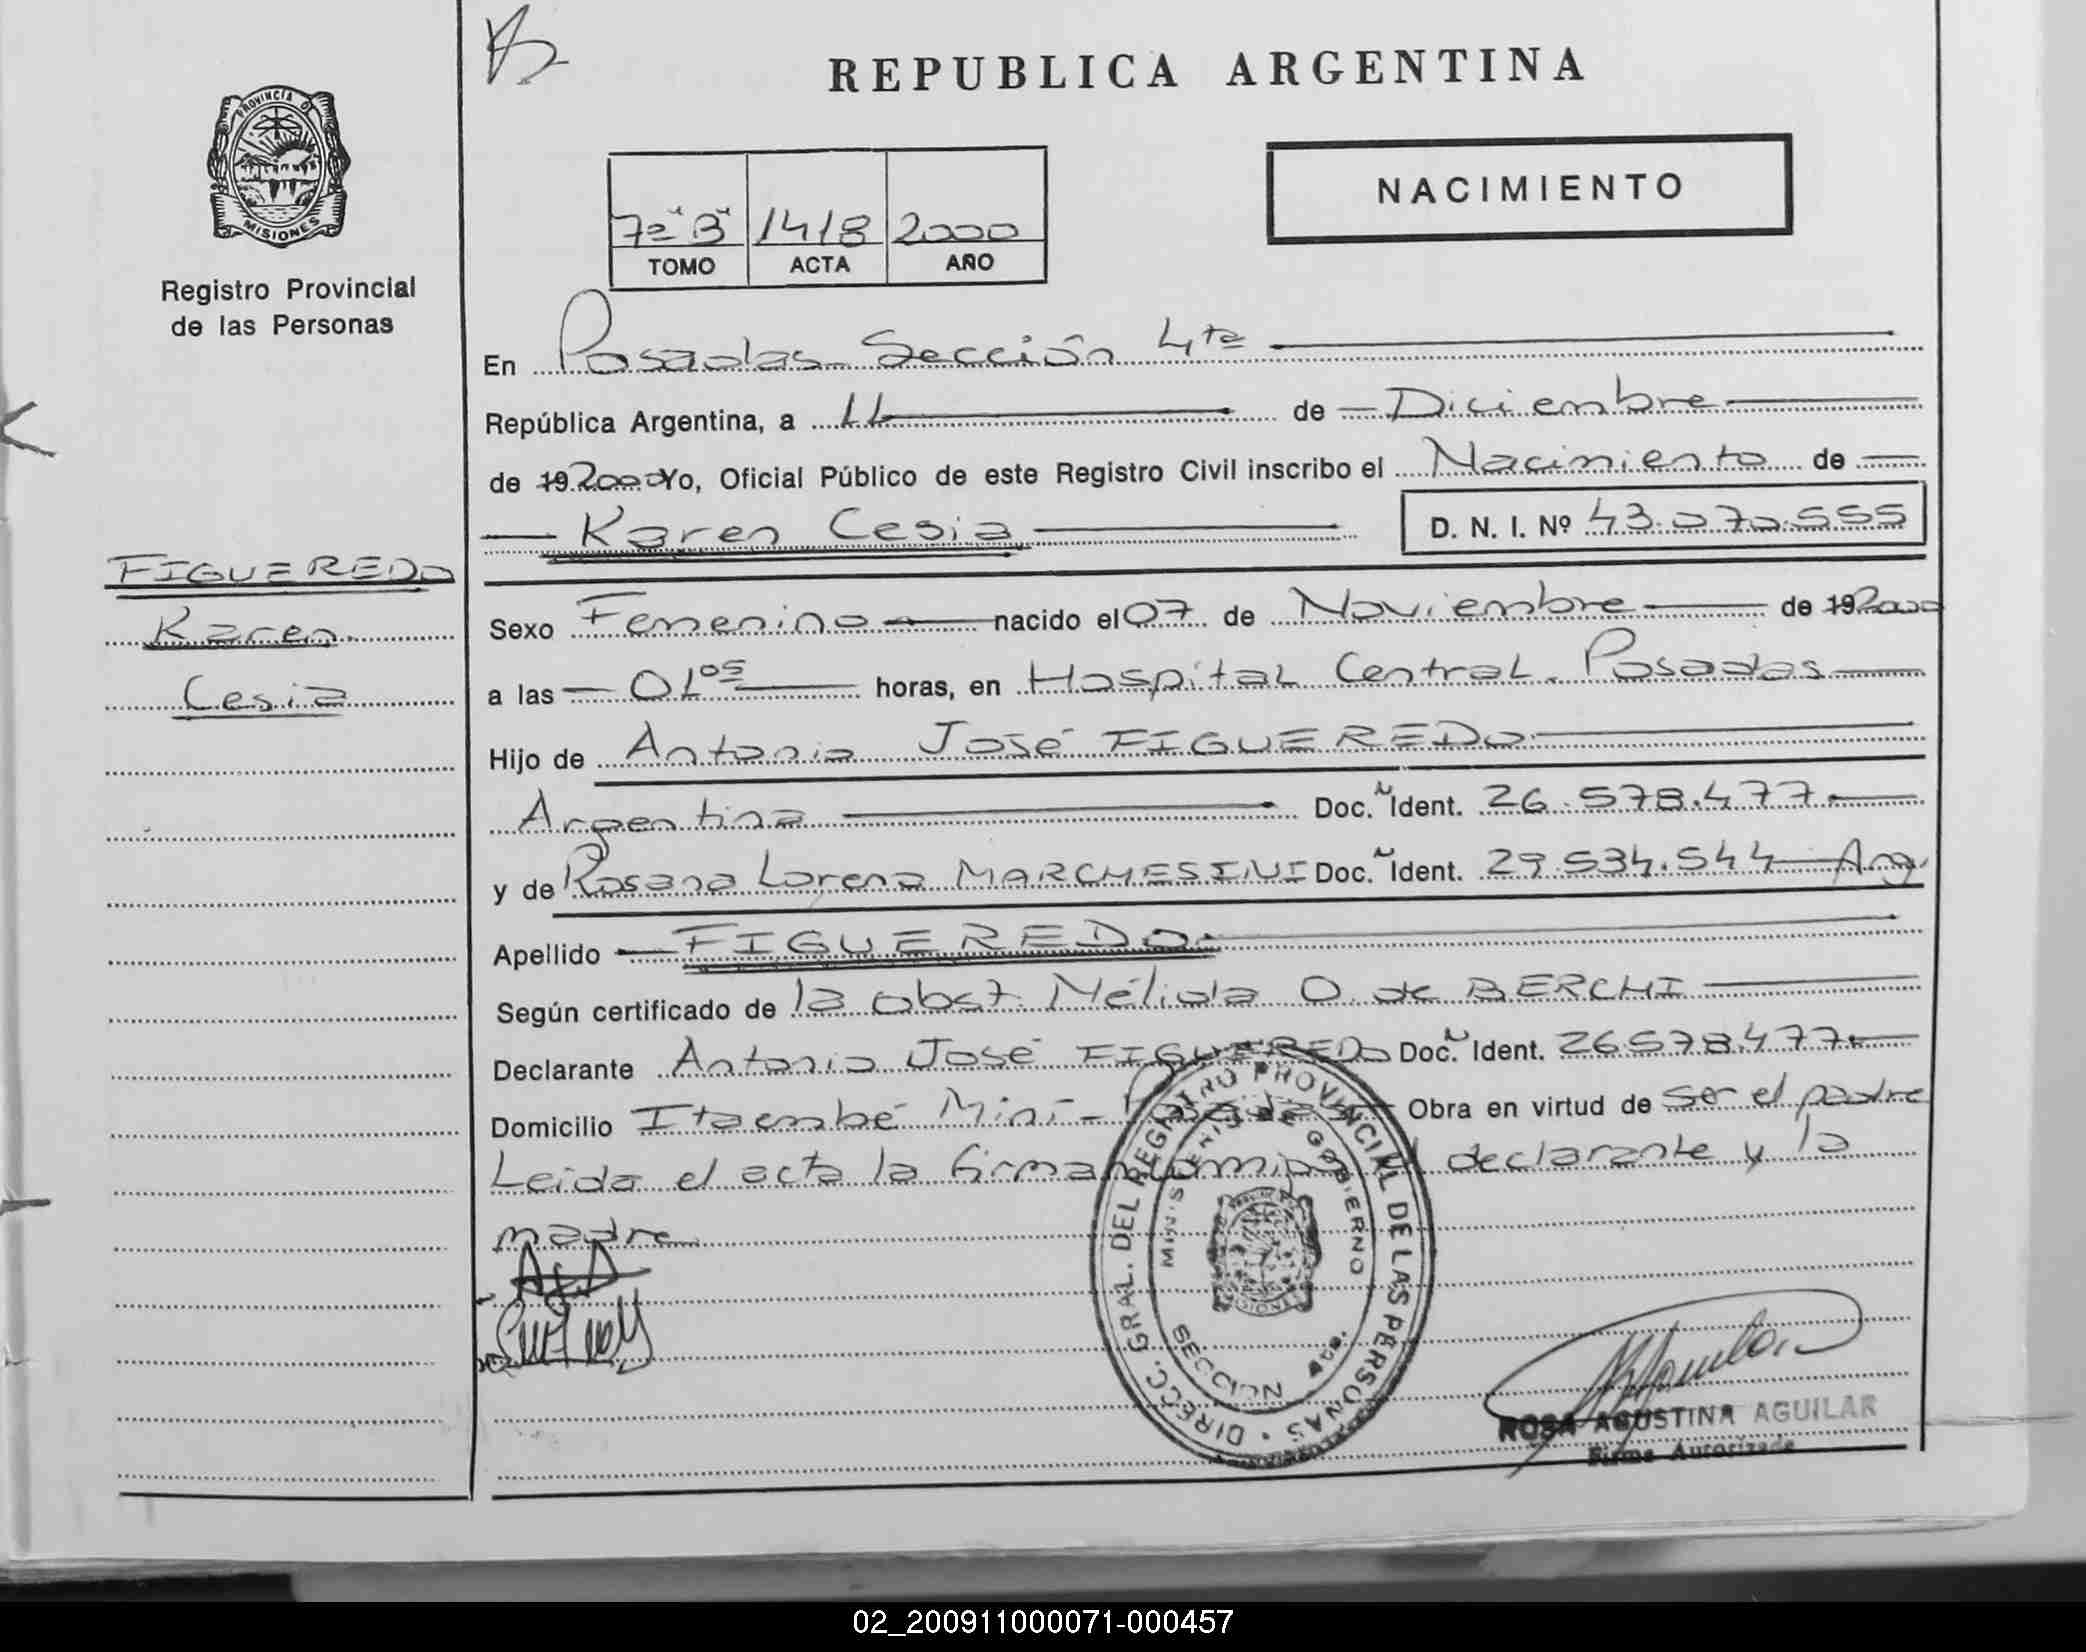 REPUBLICA ARGENTINA
PROVINCIA DE MISIONES
Registro Provincial
de las Personas
NACIMIENTO
7ª "B" 1418 2000
TOMO ACTA AÑO
En Posadas Sección 4ta
República Argentina, a 11 de Diciembre
de 19 2000 Yo, Oficial Público de este Registro Civil inscribo el Nacimiento de
Karen Cesia D. N. I. Nº 43.070.555
FIGUEREDO
Karen
Cesia
Sexo Femenino nacido el 07 de Noviembre de 19 2000
a las 01 05 horas, en Hospital Central. Posadas
Hijo de Antonio José FIGUEREDO
Argentina Doc. Ident. 26.578.477
y de Rosana Lorena MARCHESINI Doc. Ident. 29.534.544 Arg.
Apellido FIGUEREDO
Según certificado de la obst. Nélida O. de BERCHI
Declarante Antonio José FIGUEREDO Doc. Ident. 26578.477
Domicilio Itaembé Miní - Posadas Obra en virtud de ser el padre
Leida el acta la firman conmigo el declarante y la
madre
DIRECC. GRAL. DEL REGISTRO PROVINCIAL DE LAS PERSONAS
MINISTERIO DE GOBIERNO
SECCION 4ta.
ROSA AGUSTINA AGUILAR
Firma Autorizada
02_200911000071-000457